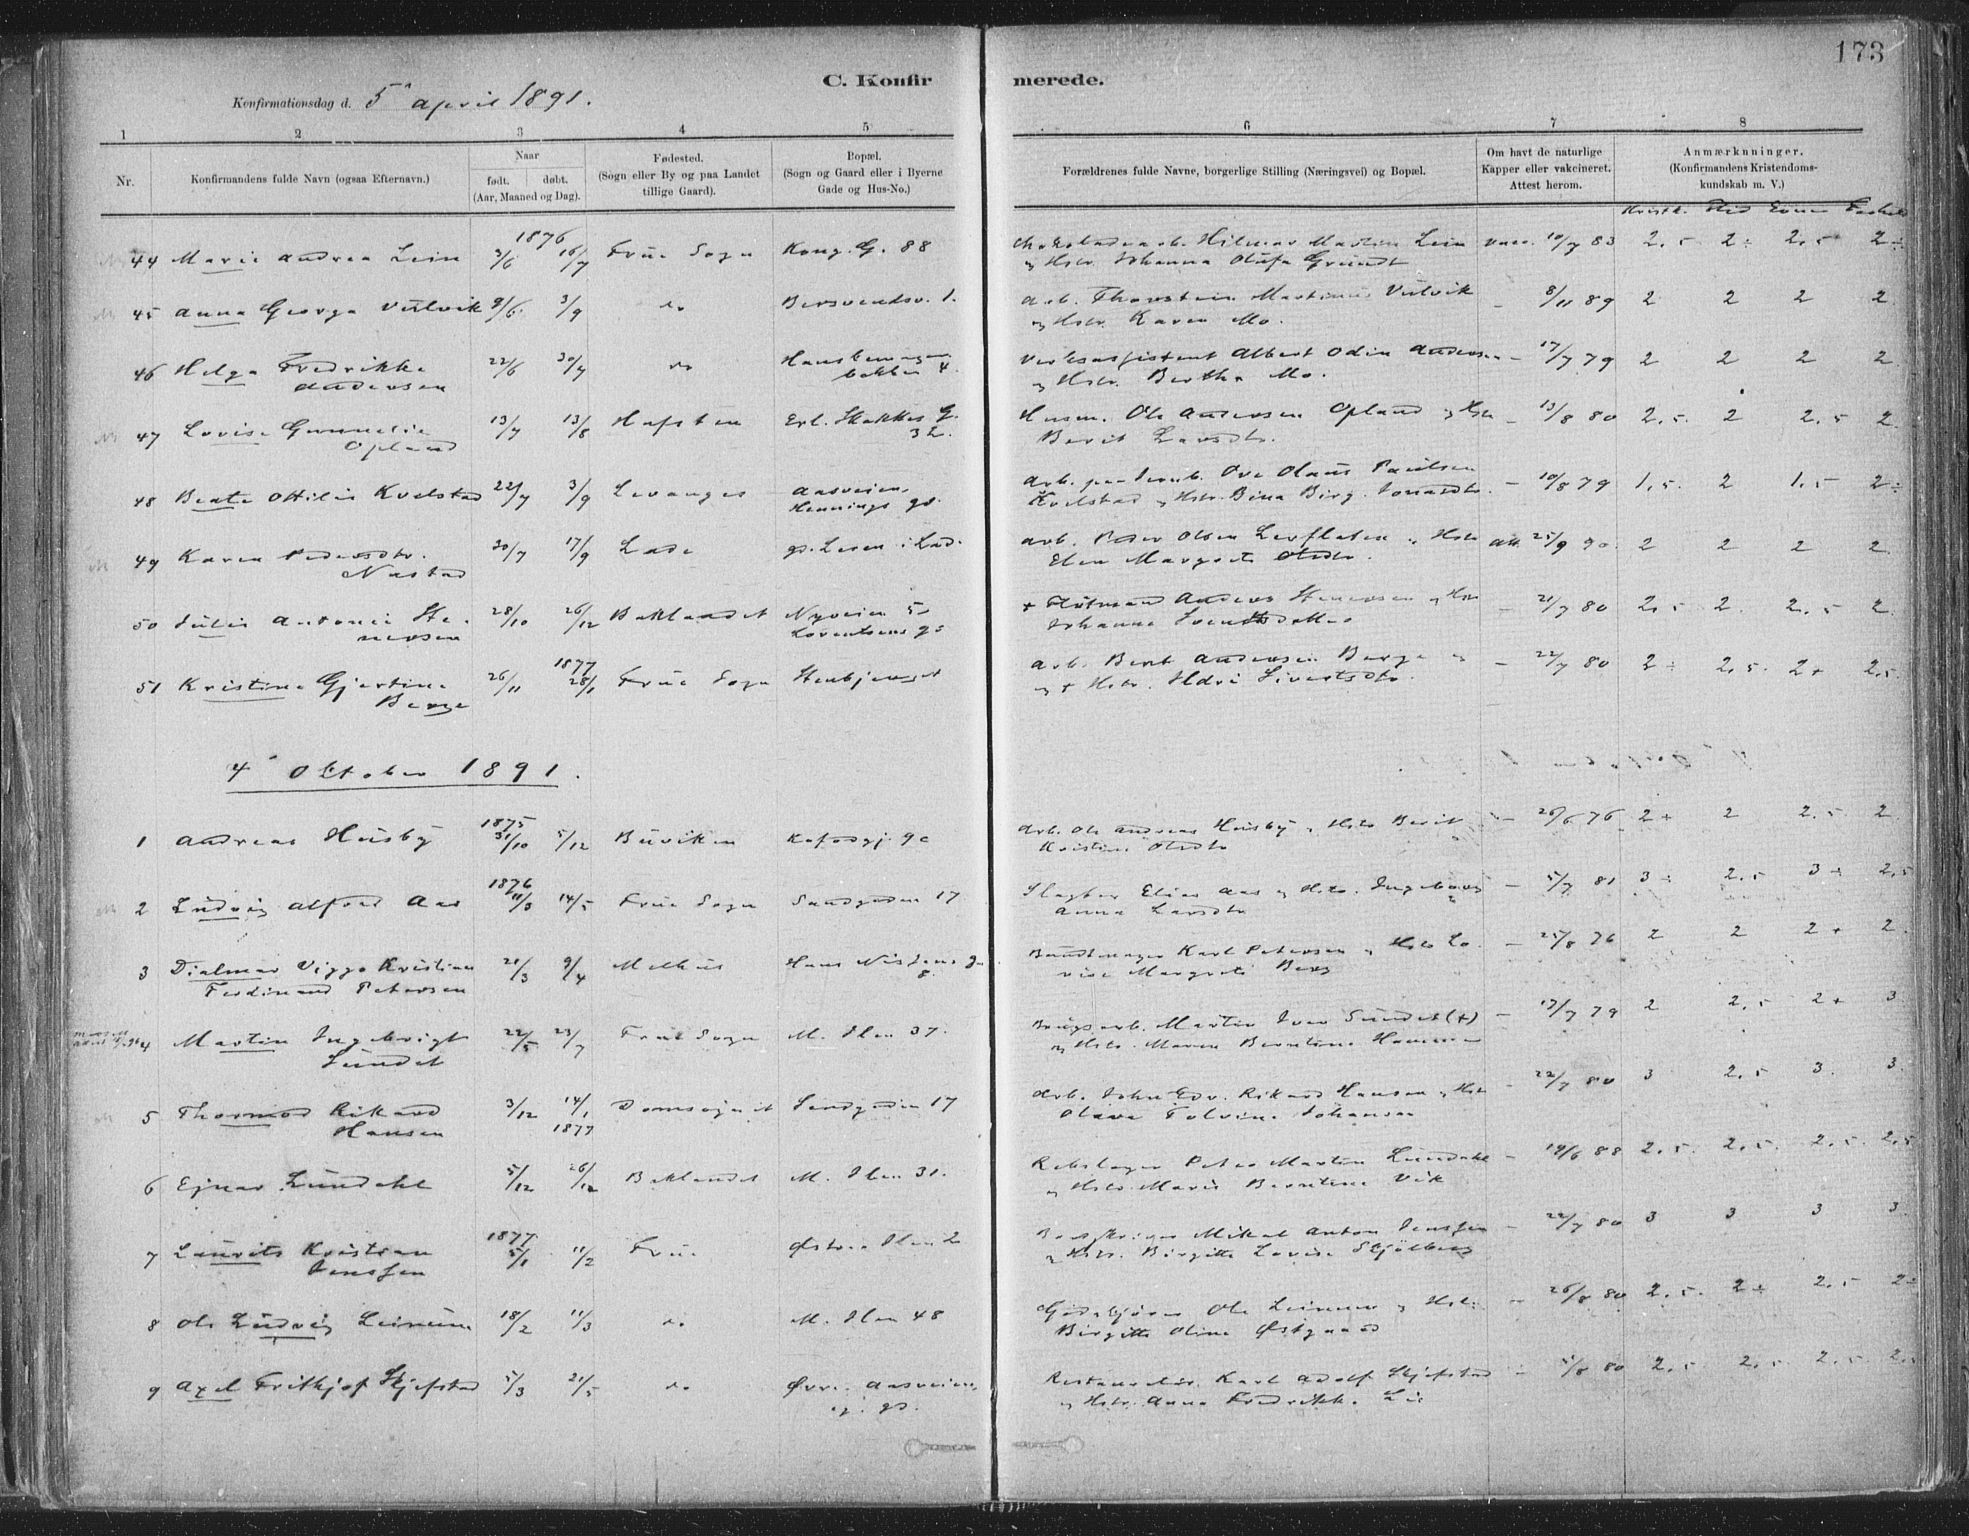 173
C. Konfirmerede.
Konfirmationsdag d. 5te april 1891.
1 2 3 4 5 6 7 8
Nr. Konfirmandens fulde Navn (ogsaa Efternavn.) Naar født. døbt. (Aar, Maaned og Dag). Fødested. (Sogn eller By og paa Landet tillige Gaard). Bopæl. (Sogn og Gaard eller i Byerne Gade og Hus-No.) Forældrenes fulde Navne, borgerlige Stilling (Næringsvei) og Bopæl. Om havt de naturlige Kapper eller vakcineret. Attest herom. Anmærkninger. (Konfirmandens Kristendomskundskab m. V.)
Kristk. Flid Evner Forhold
1876
44 Marie Andrea Lein 3/6 16/7 Frue Sogn Kong. G. 88 Hilmar Martin Lein vacc. 10/7 83 2,5 2÷ 2,5 2÷
og Hstr. Johanna Olufa Grundt
45 Anna Georga Vulvik 9/6 3/9 do Bersvendsv. 1. Arb. Thorstein Martinus Vulvik – 8/11 89 2 2 2 2
og Hstr. Karen Mo.
46 Helga Fredrikke 22/6 30/7 do Albert Odin Andersen – 17/7 79 2 2 2 2
Andersen bakken 4. og Hstr. Berthe Mo.
47 Lovise Gunnerie 13/7 13/8 Hafsten Erl. Skakkes G. Husm. Ole Andersen Opland og Hstr – 13/8 80 2,5. 2 2,5 2
Opland 32. Berit Larsdtr.
48 Beate Ottilie Kvelstad 22/7 3/9 Levanger Aasveien, Arb. paa Jernb. Ove Olaus Paulsen – 10/8 79 1,5. 2 1,5 2÷
Hennings gd. Kvelstad og Hstr. Bina Birg. Jonasdtr.
49 Karen Pedersdtr. 30/7 17/9 Lade gd. Leren i Lad. Arb. Peder Olsen Lerflaten og Hstr Att. 25/9 90. 2 2 2 2
Nastad Elen Margrete Olsdtr.
50 Julie Antonie Ste- 28/10 26/12 Baklandet Nyveien 5 + Fløtmand Anders Stenersen og Hstr – 21/7 80 2,5 2. 2,5 2
nersen Lorentsens gd Johanna
1877
51 Kristine Gjertine 26/11 28/1 Frue Sogn Stenbjerget Arb. Bernt Andersen Berge – 22/7 80 2÷ 2,5. 2+ 2,5
Berge og + Hstr. Ildri Sivertsdtr.
4de Oktober 1891.
1875
1 Andreas Husby 31/10 5/12 Buviken 9c Arb. Ole Andreas Husby og Hstr Berit – 26/6 76 2+ 2 2,5 2
Kristine Olsdtr
1876
2 Ludvig Alfred Aas 11/3 14/5 Frue Sogn Sandgaden 17 Slagter Elias Aas og Hstr. Ingeborg – 5/7 81 3÷ 2,5 3÷ 2,5
Anna Larsdtr
3 Dialmar Viggo Kristian 21/3 9/4 Melhus Hans Nissens g. Karl Petersen og Hstr Lo- – 25/8 76 2 2 2+ 2
Ferdinand Petersen 8. vise Margrete Berg
4 Martin Ingebrigt 22/5 23/7 Frue Sogn M. Ilen 37. Brugsarb. Martin Iver Sundet (+) – 17/7 79 2 2,5 2+ 3
Sundet og Hstr. Maren Berntine Hammer
5 Thormod Rikard 3/12 14/1 Domsognet Sandgaden 17 Arb. John Edv. Rikard Hansen og Hstr – 22/7 80 3 2,5 3. 3.
Hansen 1877 Olava Tolvine Johansen
6 Ejnar Lundahl 5/12 26/12 Baklandet M. Ilen 31. Rebslager Peter Martin Lundahl – 19/6 88 2,5. 2,5. 2,5. 2,5
og Hstr. Marie Berntine Vik
1877
7 Laurits Kristian 5/1 11/2 Frue Østre Ilen 2 Mikal Anton Jenssen – 22/7 80 3 3 3 3
Jenssen og Hstr. Birgitte Lovise Skjølberg
8 Ole Ludvig Leinum 18/2 11/3 do M. Ilen 48 Ole Leinum og Hstr. – 26/8 80 2,5. 2÷ 2,5 2÷
Birgitte Oline Østgaard
9 Axel Fritkjof Skjefstad 5/3 21/5 do Øvre Aasveien, Restauratør. Karl Adolf Skjefstad – 5/8 80 2,5 2,5 2,5 2,5
og Hstr. Anna Fredrikke Lie